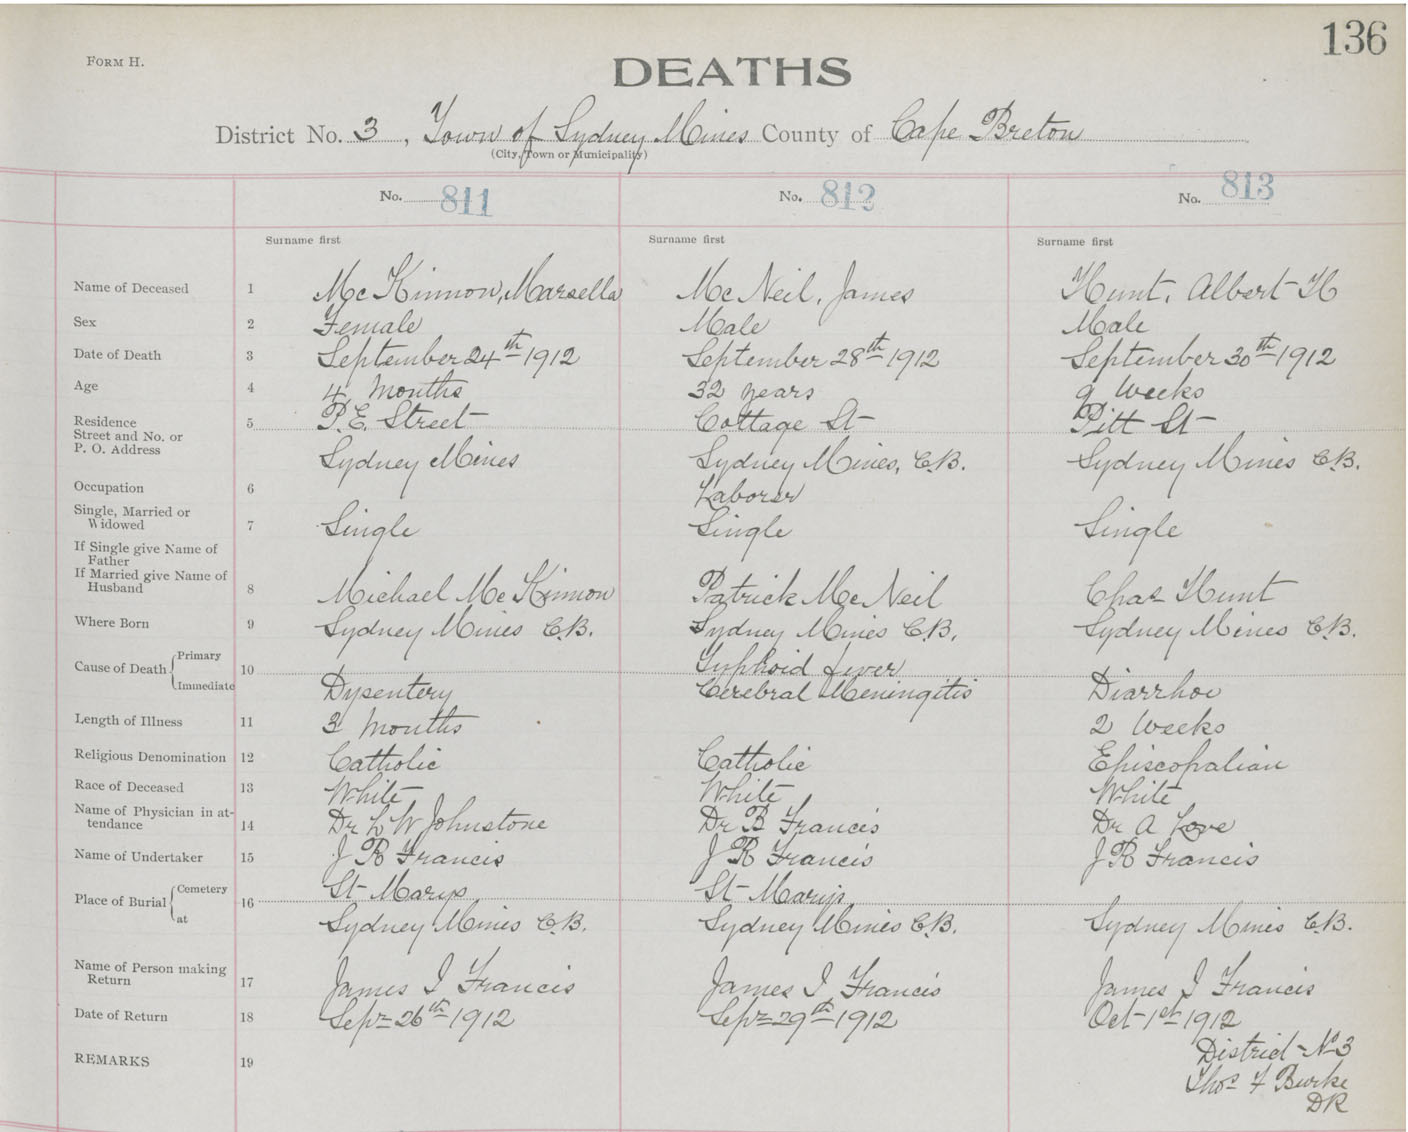 136
FORM H.
DEATHS
District No. 3, Town of Sydney Mines County of Cape Breton
(City, Town or Municipality)
No. 811 No. 812 No. 813
Surname first Surname first Surname first
Name of Deceased 1 Mc Kinnon, Marsella Mc Neil, James Hunt, Albert H
Sex 2 Female Male Male
Date of Death 3 September 24th 1912 September 28th 1912 September 30th 1912
Age 4 4 Months 32 years 9 Weeks
Residence 5 P.E. Street Cottage St Pitt St
Street and No. or
P. O. Address Sydney Mines Sydney Mines, C.B. Sydney Mines C.B.
Occupation 6 Laborer
Single, Married or
Widowed 7 Single Single Single
If Single give Name of
Father
If Married give Name of
Husband 8 Michael Mc Kinnon Patrick Mc Neil Chas Hunt
Where Born 9 Sydney Mines C.B. Sydney Mines C.B. Sydney Mines C.B.
Cause of Death Primary 10 Typhoid Fever
Immediate Dysentery Cerebral Meningitis Diarrhoe
Length of Illness 11 3 Months 2 Weeks
Religious Denomination 12 Catholic Catholic Episcopalian
Race of Deceased 13 White White White
Name of Physician in at-
tendance 14 Dr L W Johnstone Dr B Francis Dr A Love
Name of Undertaker 15 J R Francis J R Francis J R Francis
Place of Burial Cemetery 16 St Marys St Marys
at Sydney Mines C.B. Sydney Mines C.B. Sydney Mines C.B.
Name of Person making
Return 17 James I Francis James I Francis James I Francis
Date of Return 18 Sept 26th 1912 Sept 29th 1912 Oct 1st 1912
REMARKS 19 District No 3
Thos F Burke
DR